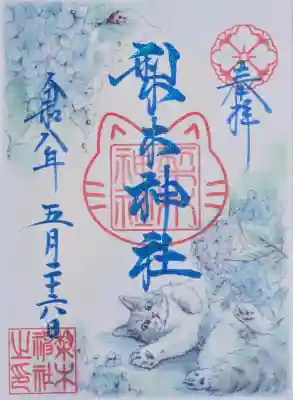 奉拝
梨木神社
令和八年 五月二十六日
梨木
神社
梨木
神社
之印